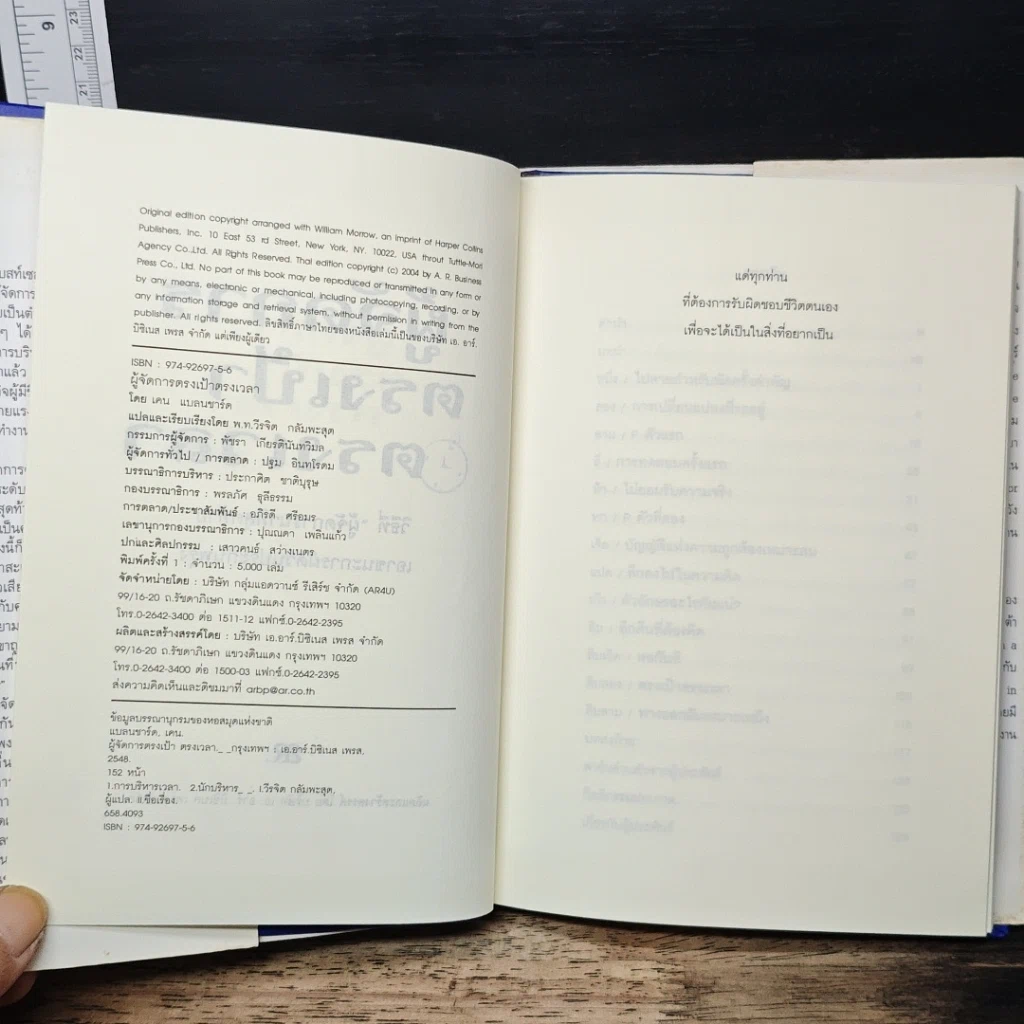 9
23
22
21
Original edition copyright arranged with William Morrow, an imprint of Harper Collins
Publishers, Inc. 10 East 53 rd Street, New York, NY. 10022, USA throut Tuttle-Mori
Agency Co.,Ltd. All Rights Reserved. Thai edition copyright (c) 2004 by A. R. Business
Press Co., Ltd. No part of this book may be reproduced or transmitted in any form or
by any means, electronic or mechanical, including photocopying, recording, or by
any information storage and retrieval system, without permission in writing from the
publisher. All rights reserved. ลิขสิทธิ์ภาษาไทยของหนังสือเล่มนี้เป็นของบริษัท เอ. อาร์.
บิซิเนส เพรส จำกัด แต่เพียงผู้เดียว
ISBN : 974-92697-5-6
ผู้จัดการตรงเป้าตรงเวลา
โดย เคน แบลนชาร์ด
แปลและเรียบเรียงโดย พ.ท.วีรจิต กลัมพะสุต
กรรมการผู้จัดการ : พัชรา เกียรตินันทวิมล
ผู้จัดการทั่วไป / การตลาด : ปฐม อินทโรดม
บรรณาธิการบริหาร : ประกาศิต ชาติบุรุษ
กองบรรณาธิการ : พรลภัศ ธุลีธรรม
การตลาด/ประชาสัมพันธ์ : อภิรดี ศรีอมร
เลขานุการกองบรรณาธิการ : ปุณณดา เพลินแก้ว
ปกและศิลปกรรม : เสาวคนธ์ สว่างเนตร
พิมพ์ครั้งที่ 1 : จำนวน : 5,000 เล่ม
จัดจำหน่ายโดย : บริษัท กลุ่มแอดวานซ์ รีเสิร์ช จำกัด (AR4U)
99/16-20 ถ.รัชดาภิเษก แขวงดินแดง กรุงเทพฯ 10320
โทร.0-2642-3400 ต่อ 1511-12 แฟกซ์.0-2642-2395
ผลิตและสร้างสรรค์โดย : บริษัท เอ.อาร์.บิซิเนส เพรส จำกัด
99/16-20 ถ.รัชดาภิเษก แขวงดินแดง กรุงเทพฯ 10320
โทร.0-2642-3400 ต่อ 1500-03 แฟกซ์.0-2642-2395
ส่งความคิดเห็นและติชมมาที่ arbp@ar.co.th
ข้อมูลบรรณานุกรมของหอสมุดแห่งชาติ
แบลนชาร์ด. เคน.
ผู้จัดการตรงเป้า ตรงเวลา._ _กรุงเทพฯ : เอ.อาร์.บิซิเนส เพรส.
2548.
152 หน้า
1.การบริหารเวลา. 2.นักบริหาร_ _. I.วีรจิต กลัมพะสุต.
ผู้แปล. II.ชื่อเรื่อง.
658.4093
ISBN : 974-92697-5-6
แด่ทุกท่าน
ที่ต้องการรับผิดชอบชีวิตตนเอง
เพื่อจะได้เป็นในสิ่งที่อยากเป็น